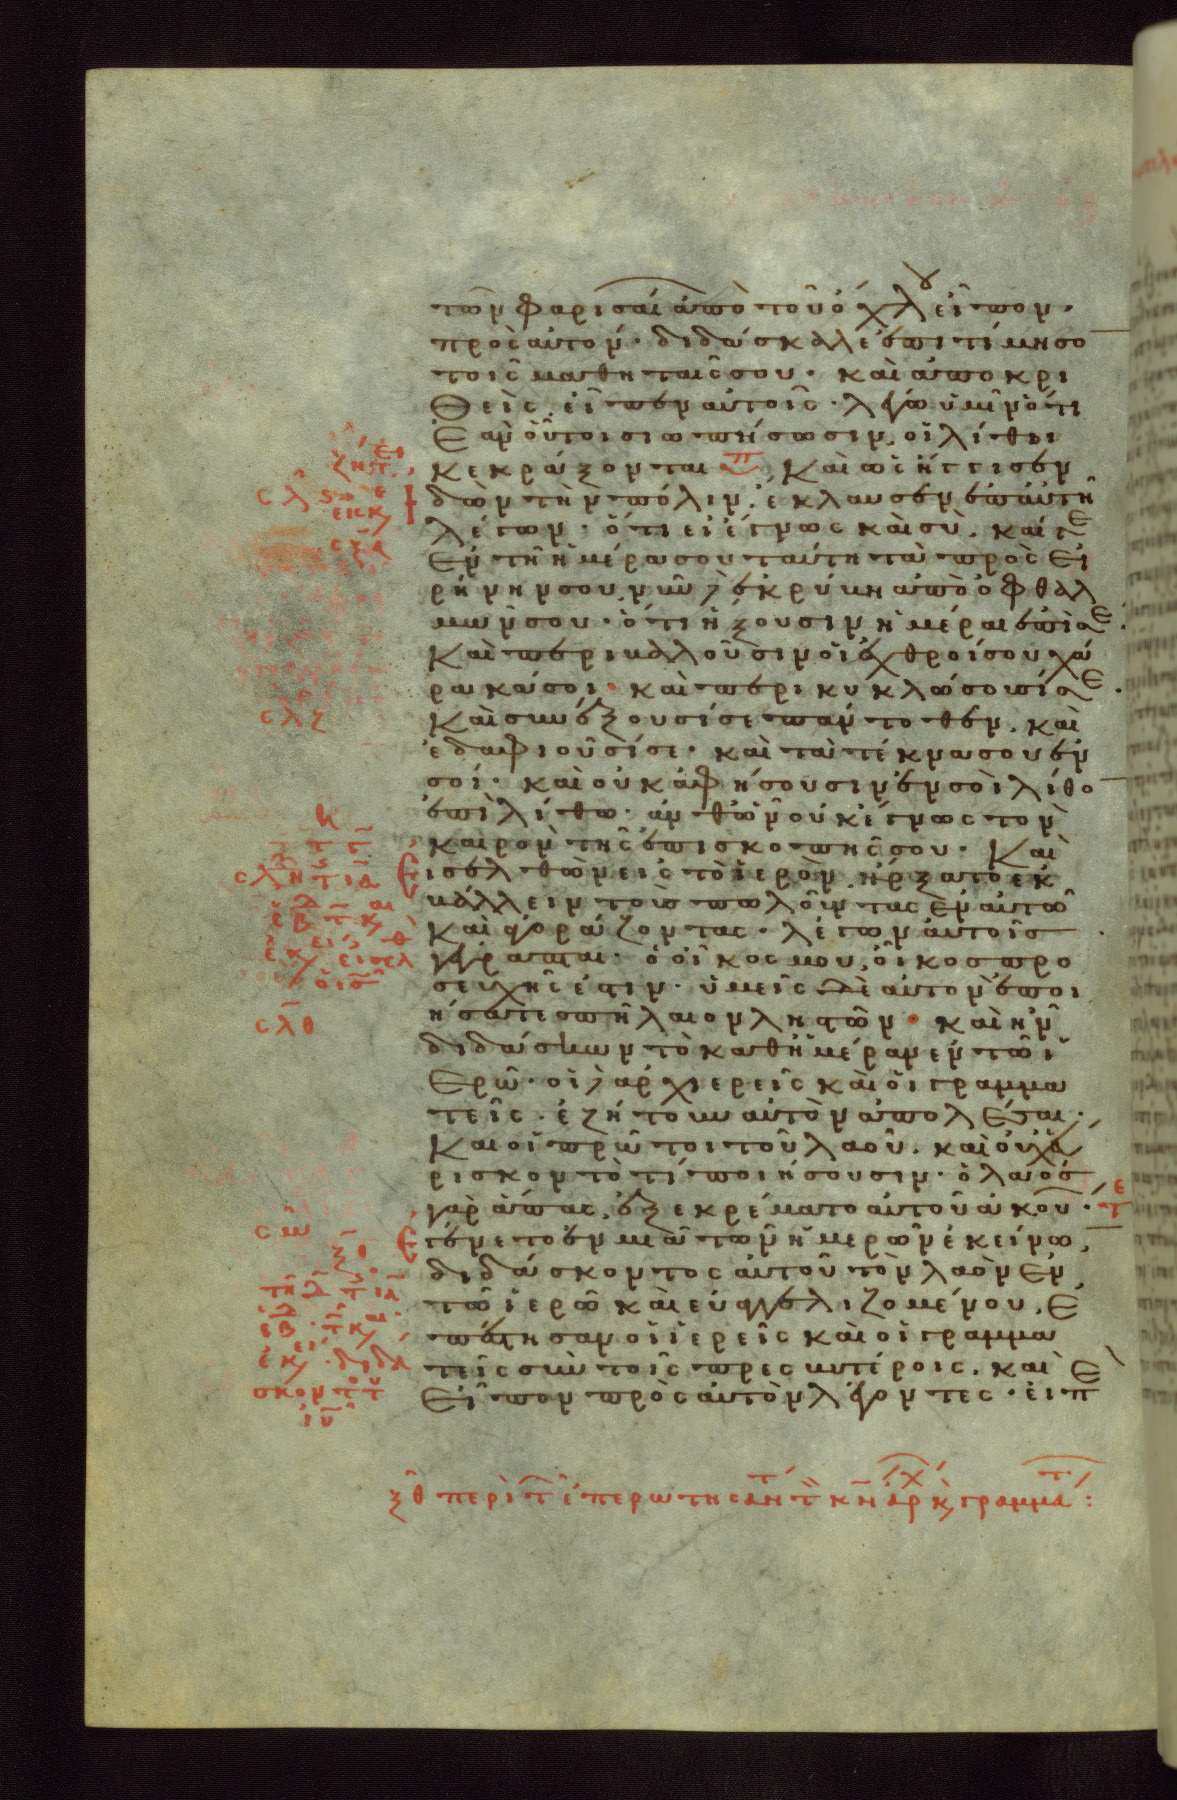 τῶν φαρισαί ἀπὸ τοῦ ὄχλ εἶπον·
προσ αὐτον· διδάσκαλε ἐπιτίμησο
τοῖς μαθηταῖς σου· καὶ ἀποκρι
θεὶς, εἶπεν αὐτοῖς· λέγω ὑμῖν ὅτι
Ἐαν οὗτοι σιωπήσωσιν, οἱ λίθοι
κεκράξονται Καὶ ὡς ἤγγισεν
ϊδὼν τὴν πόλιν, ἔκλαυσεν ἐπ αὐτῆ
λέγων· ὅτι εἰ ἔγνως καὶ σὺ, καί γε
Ἐν τῆ ἡμέρα σου ταύτη τὰ πρὸς εἰ
ρήνην σου, νῦν δὲ ἐκρύβη ἀπὸ ὀφθαλ
μῶν σου· ὅτι ἥξουσιν ἡμέραι ἐπὶ σε·
Καὶ περιβαλοῦσιν οἱ ἐχθροί σου χά
ρακά σοι· καὶ περικυκλώσουσί σε·
Καὶ συνέξουσί σε πάντοθεν, καὶ
ἐδαφιοῦσί σε· καὶ τὰ τέκνα σου ἐν
σοί· καὶ οὐκ ἀφήσουσιν ἐν σοὶ λίθο
ἐπὶ λίθω· ἀνθ ὧν οὐκ ἔγνως τὸν
καιρὸν τῆς ἐπισκοπῆς σου· Καὶ
εἰσελθὼν εἰς τὸ ἱερὸν, ἤρξατο ἐκ
βάλλειν τοὺς πωλοῦντας ἐν αὐτῶ
Καὶ ἀγοράζοντας· λέγων αὐτοῖς
γέγραπται· ὁ οἶκος μου, οἶκος προ
σευχῆς ἐστιν· ὑμεῖς δὲ αὐτὸν ἐποι
ήσατε σπήλαιον ληστῶν· καὶ ἦν
διδάσκων τὸ καθ ἡμέραν ἐν τῶ ἱ
Ἐρῶ· οἱ δὲ ἀρχιερεῖς καὶ οἱ γραμμα
τεῖς· ἐζήτουν αὐτὸν ἀπολέσαι·
Και οἱ πρῶτοι τοῦ λαοῦ, καὶ οὐχ εὕ
ρισκον τὸ τί ποιήσουσιν· ὁ λαὸς
γὰρ ἅπας, ἐξεκρέματο αὐτοῦ ἀκού·
Ἐγένετο ἐν μιᾶ τῶν ἡμερῶν ἐκείνω,
διδάσκοντος αὐτοῦ τὸν λαὸν ἐν
τῶ ἱερῶ καὶ εὐαγγελιζομένου, ἐ
πέστησαν οἱ ἱερεῖς καὶ οἱ γραμμα
τεῖς σὺν τοῖς πρεσβυτέροις, καὶ
Εἶπον πρὸς αὐτὸν λέγοντες· εἰπὲ
σλζ
σλη
σλθ
σμ
ξθ περὶ τ ἐπερωτησάντ κν ἀρχ κ γραμματ: